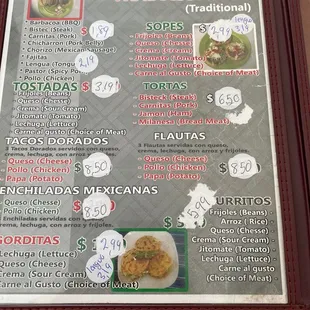 (Traditional)
• Barbacoa (BBQ)
Bistec (Steak)
Carnitas (Pork)
Chicharron (Pork Belly)
Chorizo (Mexican Sausage)
Fajitas
Lengua (Tongue)
Pastor (Spicy Pork)
Pollo (Chicken)
SOPES
Frijoles (Beans)
Queso (Cheese)
Crema (Cream)
Jitomate (Tomato)
Lechuga (Lettuce)
Carne al Gusto (Choice of Meat)
$ 2,99
2,19
TOSTADAS
$ 3,19
Frijoles (Beans)
Queso (Cheese)
Crema (Sour Cream)
Jitomate (Tomato)
Lechuga (Lettuce)
Carne al gusto (Choice of Meat)
TORTAS
Bistec (Steak)
Carnitas (Pork)
Jamon (Ham)
Milanesa (Bread Meat)
$ 6,50
TACOS DORADOS
3 Tacos Dorados servidos con queso,
crema, lechuga, con arroz y frijoles.
- Queso (Cheese)
- Pollo (Chicken)
- Papa (Potato)
8,50
FLAUTAS
3 Flautas servidas con queso,
crema, lechuga, con arroz y frijoles.
- Queso (Cheese)
- Pollo (Chicken)
- Papa (Potato)
$ 8,50
ENCHILADAS MEXICANAS
Queso (Cheese)
Pollo (Chicken)
$ 8,50
Enchiladas servidas con
crema, lechuga, con arroz y frijoles.
BURRITOS
$ 5,99
Frijoles (Beans)
Arroz (Rice)
Queso (Cheese)
Crema (Sour Cream)
Jitomate (Tomato)
Lechuga (Lettuce)
Carne al gusto
(Choice of Meat)
GORDITAS
$ 2,99
Lechuga (Lettuce)
Queso (Cheese)
Crema (Sour Cream)
Carne al Gusto (Choice of Meat)